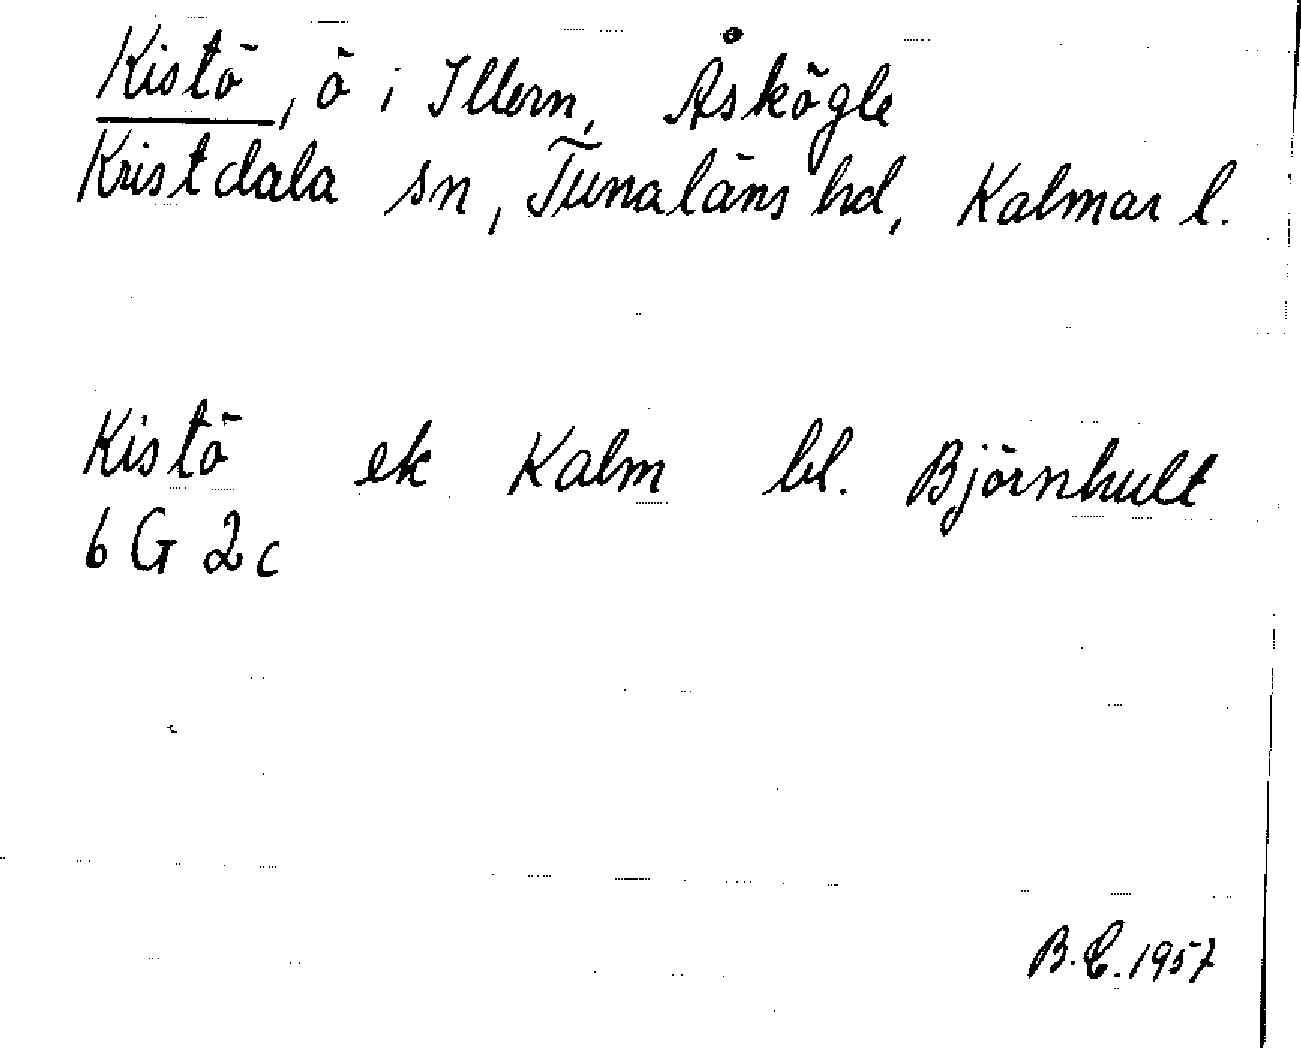 Kistö, ö i Illern, Åskögle
Kristdala sn, Tunaläns hd, Kalmar l.
Kistö ek Kalm bl. Björnhult
6 G 2c
B.E. 1957